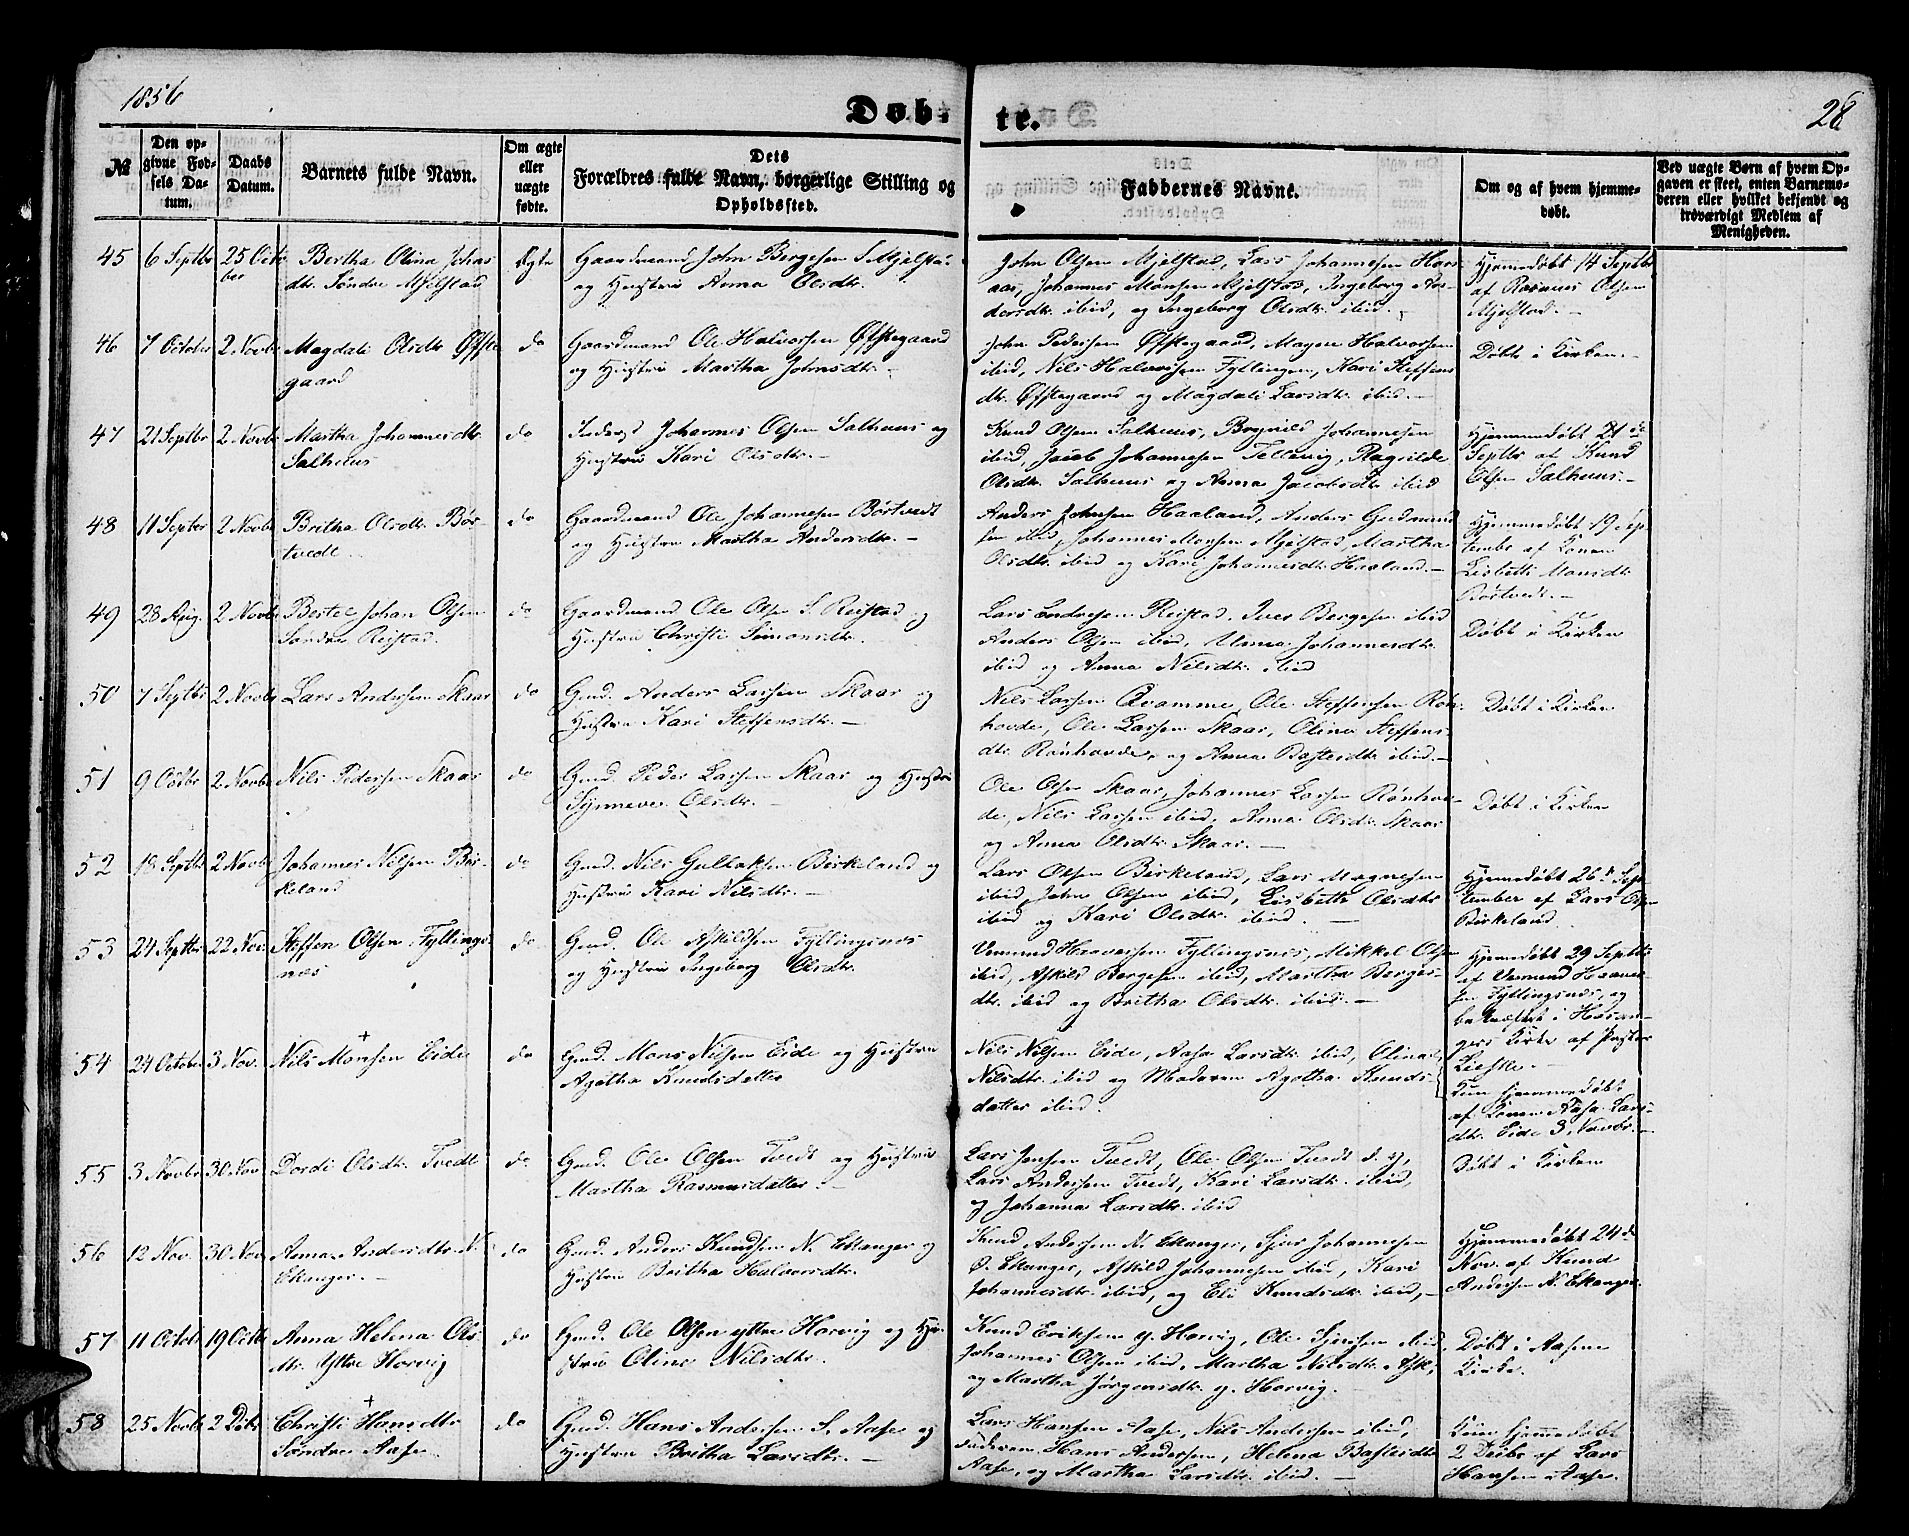 1856
Døbte.
28
№
Den opgivne Fødsels Datum.
Daabs Datum.
Barnets fulde Navn.
Om ægte eller uægte fødte.
Dets Forældres fulde Navn, borgerlige Stilling og Opholdssted.
Faddernes Navne.
Om og af hvem hjemmedøbt.
Ved uægte Børn af hvem Opgaven er skeet, enten Barnemoderen eller hvilket bekjendt og troværdigt Medlem af Menigheden.
45 6 Septbr 25 Octo Bertha Olina Johns Ægte Gaardmand John Bergesen S. Mjelstad John Olsen Mjelstad, Lars Johannesen Hjemmedøbt 14 Septbr
ber dtr. Søndre Mjelstad og Hustru Anna Olsdtr. Johannes Monsen Mjelstad, Ingeborg An- af Rasmus Olsen
dersdtr. ibid, og Ingeborg Olsdtr. ibid. Mjelstad.
46 7 October 2 Novbr Magdali Olsdtr Øfste do Gaardmand Ole Halvorsen Øfstegaard John Pedersen Øfstegaard, Magne Halvorsen Døbt i Kirken.
gaard og Hustru Martha Johnsdtr. ibid, Nils Halvorsen Fyllingen, Kari Steffens
dtr. Øfstegaard og Magdali Larsdtr. ibid.
47 21 Septbr 2 Novbr Martha Johannesdtr. do Inderst Johannes Olsen Salhuus og Knud Olsen Salhuus, Brynild Johannesen Hjemmedøbt 21 de
Salhuus Hustru Kari Olsdtr. ibid, Jacob Johannesen Tellevig, Ragnilde Septbr af Knud
Olsdtr. Salhuus og Anna Jacobsdtr ibid Olsen Salhuus.
48 11 Septbr 2 Novbr Britha Olsdtr. Bør do Gaardmand Ole Johannesen Børtvedt Anders Johnsen Haaland, Anders Gudmund Hjemmedøbt 19 Sep
tvedt og Hustru Martha Andersdtr. sen ibid, Johannes Monsen Mjelstad, Martha tembr af Konen
Olsdtr. ibid og Kari Johannesdtr. Haaland. Lisbeth Monsdtr
Børtvedt.
49 28 Aug. 2 Novbr Bertel Johan Olsen do Gaardmand Ole Olsen S. Reistad og Lars Endresen Reistad, Iver Bergesen ibid Døbt i Kirken
Søndre Reistad. Hustru Christi Simonsdtr. Anders Olsen ibid, Anna Johannesdtr.
ibid og Anna Nilsdtr. ibid
50 7 Septbr 2 Novbr Lars Andersen Skaar do Gmd. Anders Larsen Skaar og Nils Larsen Qvamme, Ole Steffensen Røn- Døbt i Kirken
Hustru Kari Steffensdtr. hovde, Ole Larsen Skaar, Olina Steffens
dtr. Rønhovde, og Anna Bastesdtr ibid.
51 9 Octbr 2 Novbr Nils Pedersen Skaar do Gmd. Peder Larsen Skaar og Hustru Ole Olsen Skaar, Johannes Larsen Rønhov- Døbt i Kirken
Synneve Olsdtr. de, Nils Larsen ibid, Anna Olsdtr. Skaar
og Anna Olsdtr. Skaar.
52 18 Septbr 2 Novbr Johannes Nilsen Bir- do Gmd. Nils Gullaksen Birkeland og Lars Olsen Birkeland, Lars Magnesen Hjemmedøbt 26 de Sep
keland Hustru Kari Nilsdtr. ibid, John Olsen ibid, Lisbeth Olsdtr tember af Lars Olsen
ibid og Kari Olsdtr. ibid. Birkeland.
53 24 Septbr 22 Nov. Steffen Olsen Fyllings do Gmd. Ole Askildsen Fyllingsnæs Vemund Haaversen Fyllingsnæs, Mikkel Olsen Hjemmedøbt 29 Septbr
næs og Hustru Ingeborg Olsdtr. ibid, Askild Bergesen ibid, Martha Berges- af Vemund Haaver
dtr. ibid og Britha Olsdtr. ibid. sen Fyllingsnæs, og
bekræftet i Hosan-
gers Kirke af Præsten
54 24 October 3 Nov. Nils + Monsen Eide do Gmd. Mons Nilsen Eide og Hustru Nils Nilsen Eide, Aasa Larsdtr. ibid, Olina
Agatha Knudsdatter Nilsdtr. ibid og Moderen Agatha Knuds- Kun hjemmedøbt
datter ibid. af Konen Aasa Lars-
dtr. Eide 3 Novbr.
55 3 Novbr 30 Nov. Dordi Olsdtr. Tvedt do Gmd. Ole Olsen Tvedt og Hustru Lars Jensen Tvedt, Ole Olsen Tvedt d. y, Døbt i Kirken
Martha Rasmusdatter. Lars Andersen Tvedt, Kari Larsdtr. ibid,
og Johanna Larsdtr. ibid
56 12 Nov. 30 Nov. Anna Andersdtr. N. do Gmd. Anders Knudsen N. Ekanger og Knud Andersen N. Ekanger, Sjur Johannesen Hjemmedøbt 24 de
Ekanger. Hustru Britha Halvorsdtr. Ø. Ekanger, Askild Johannesen ibid, Kari Nov. af Knud
Johannesdtr. ibid, og Eli Knudsdtr. ibid, Andersen N. Ekanger.
57 11 Octob 19 Octbr Anna Helena Ols do Gmd. Ole Olsen yttre Horvig og Hu- Knud Eriksen y. Horvig, Ole Sjursen ibid, Døbt i Aasene
dtr. Yttre Horvig stru Oline Nilsdtr. Johannes Olsen ibid, Martha Nilsdtr. Ask, Kirke.
og Martha Jørgensdtr. y. Horvig.
58 25 Novbr 2 Debr Christi + Hansdtr do Gmd. Hans Andersen S. Aase og Lars Hansen Aase, Nils Andersen ibid, Kun hjemmedøbt
Søndre Aase Hustru Britha Larsdtr. Faderen Hans Andersen, Helena Bastesdtr 2 Decbr af Lars
Aase, og Martha Larsdtr. ibid. Hansen Aase.